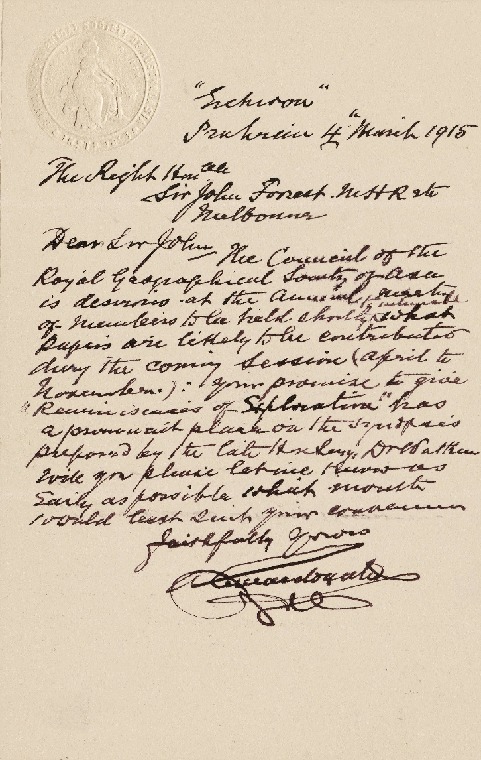 Prahran 4th March 1915
The Right Honble
Sir John Forrest M.H.R etc
Melbourne
Dear Sir John, The Council of the
Royal Geographical Society of Asia
is desirous at the Annual meeting
of Members to be held shortly, to intimate what
Papers are likely to be contributed
durg the coming Session (April to
November): your promise to give
"Reminiscences of Exploration" has
a prominent place on the synopsis
prepared by the late Hon Secy,
will you please let me know as
Early as possible which month
would best suit your convenience
faithfully yours